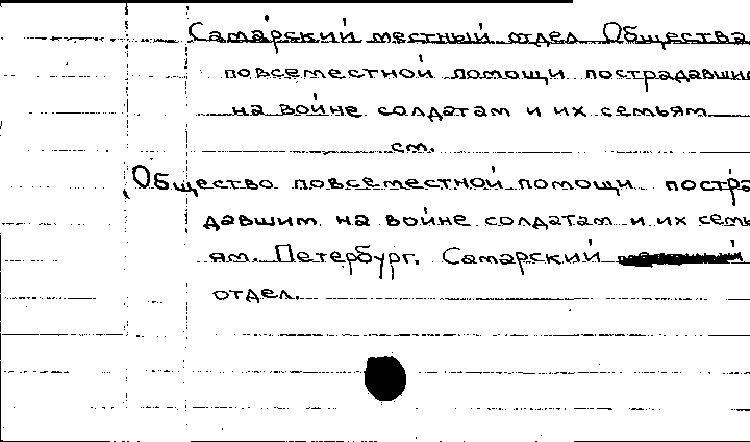 Самарский местный отдел Общества
повсеместной помощи пострадавши
на войне солдатам и их семьям
см.
Общество повсеместной помощи постра
давшим на войне солдатам и их семь
ям. Петербург. Самарский
отдел.